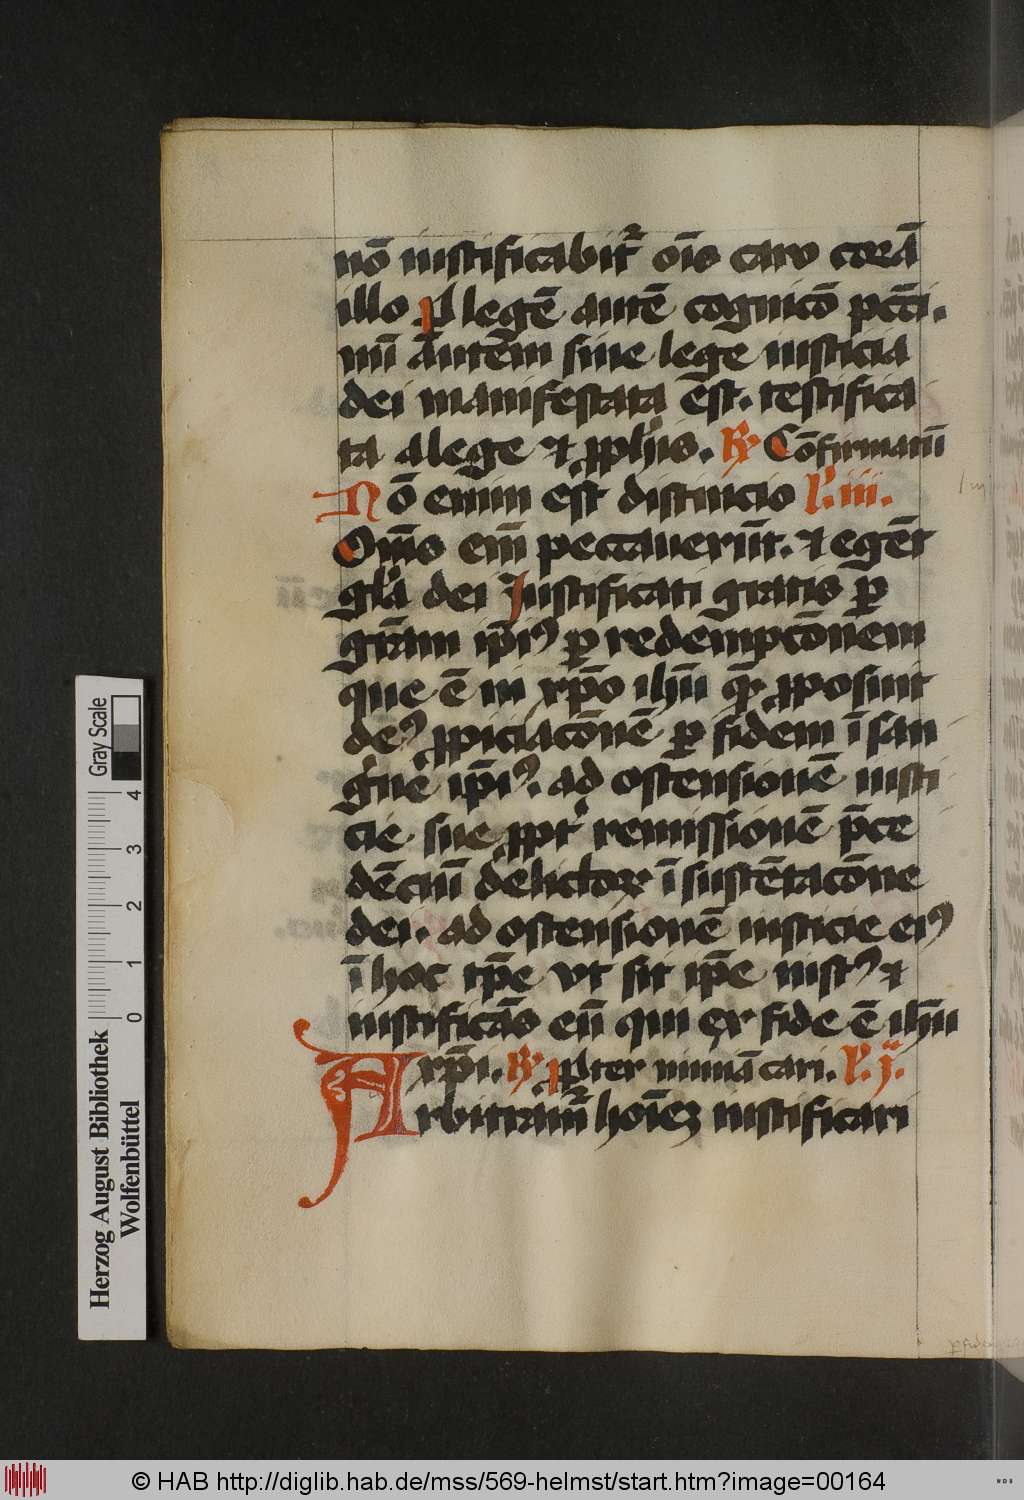 nō iustificabit᷑ oīs caro corā
illo Per legē autē cognicō pccī.
nūc autem sine lege iusticia
dei manifestata est. testifica
ta a lege et ꝓphīs. ℟ Cōfirmatū
Nō enim est distinccio l. iii.
Om̄s em̄ peccauerūt. et egēt
glā dei Iustificati gratis ꝑ
grām ip̄iꝰ ꝑ redempcōnem
que ē in xp̄o ihū quē ꝓposuit
deꝰ ꝓpiciacōnē ꝑ fidem ī san
gne ip̄iꝰ. ad ostensionē iusti
cie sue ꝓpt᷑ remissionē p̄ce
dēciū delictoꝝ ī sustētacōne
dei. ad ostensionē iusticie eiꝰ
ī hoc tp̄e vt sit ip̄e iustꝰ et
iustificās eū qui ex fide ē ihū
xp̄i. ℟ Prpter nimiā cari. l. j.
Arbitram᷑ hoīeȝ iustificari
Herzog August Bibliothek
Wolfenbüttel
0 1 2 3 4
Gray Scale
© HAB http://diglib.hab.de/mss/569-helmst/start.htm?image=00164